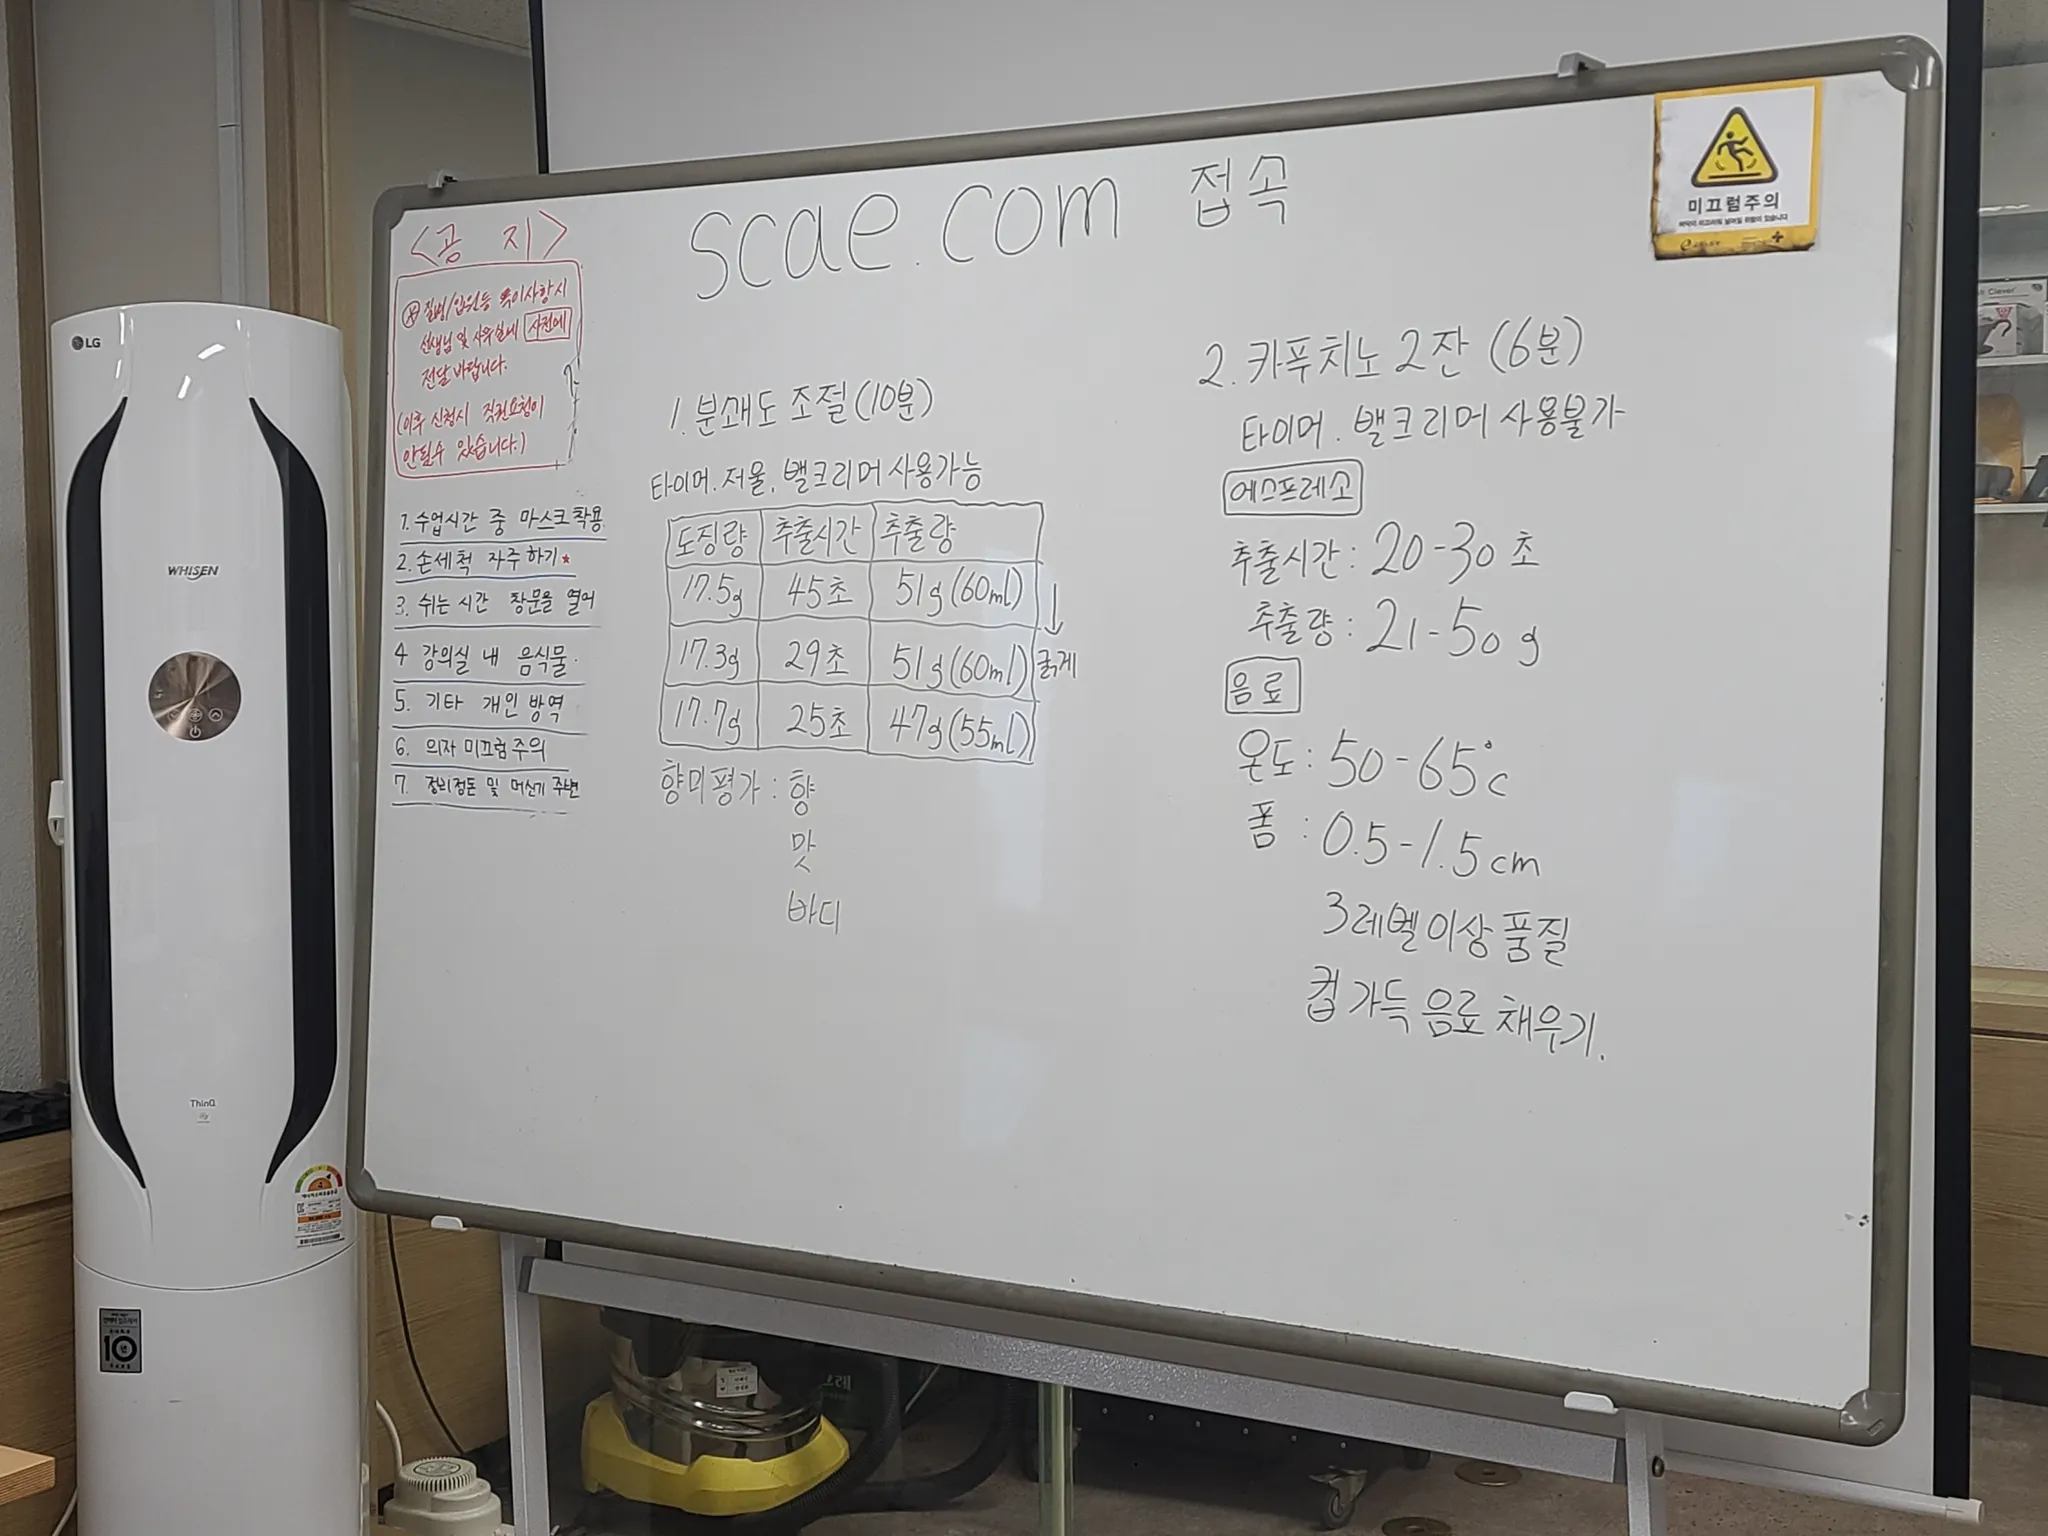 scae.com 접속
미끄럼주의
<공 지>
※ 질병/입원등 특이사항시
선생님 및 사무실에 사전에
전달 바랍니다.
(이후 신청시 직권요청이
안될수 있습니다.)
1. 수업시간 중 마스크 착용
2. 손세척 자주 하기 ★
3. 쉬는 시간 창문을 열어
4 강의실 내 음식물.
5. 기타 개인 방역
6. 의자 미끄럼 주의
7. 정리정돈 및 머신기 주변
1. 분쇄도 조절 (10분)
타이머. 저울. 밸크리머 사용가능
도징량 추출시간 추출량
17.5g 45초 51g (60ml)
17.3g 29초 51g (60ml)
17.7g 25초 47g (55ml)
↓
굵게
향미평가 : 향
맛
바디
2. 카푸치노 2잔 (6분)
타이머. 밸크리머 사용불가
에스프레소
추출시간 : 20-30 초
추출량 : 21-50 g
음료
온도 : 50-65°c
폼 : 0.5-1.5 cm
3레벨 이상 품질
컵 가득 음료 채우기.
LG
WHISEN
ThinQ
10년